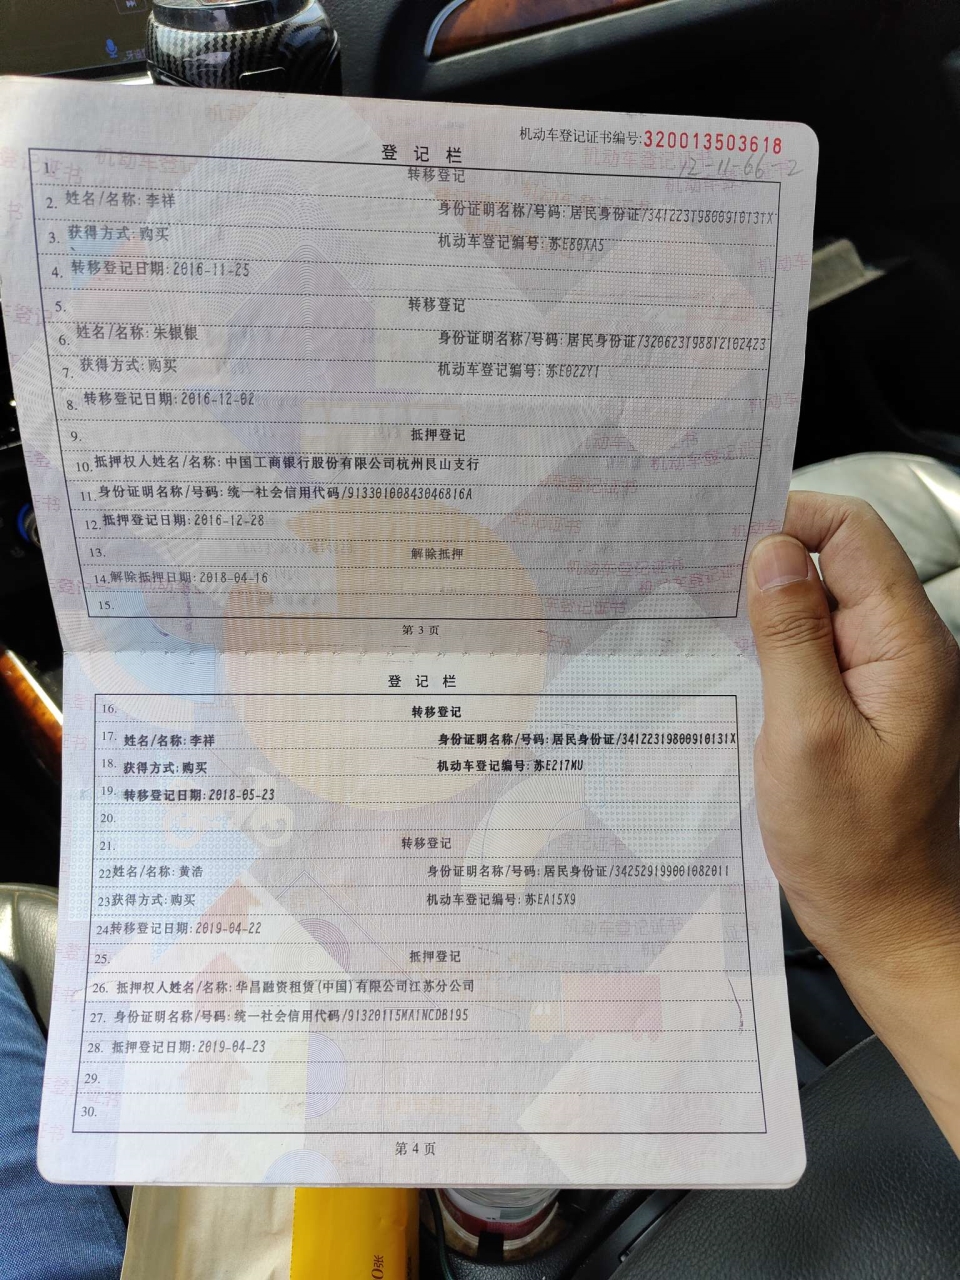 机动车登记证书编号:320013503618
12-11-66-2
登记栏
1. 转移登记
2. 姓名/名称:李祥 身份证明名称/号码:居民身份证/34122319800910131X
3. 获得方式:购买 机动车登记编号:苏E80XA5
4. 转移登记日期:2016-11-25
5. 转移登记
6. 姓名/名称:朱银银 身份证明名称/号码:居民身份证/320623198812102423
7. 获得方式:购买 机动车登记编号:苏E02ZY1
8. 转移登记日期:2016-12-02
9. 抵押登记
10. 抵押权人姓名/名称:中国工商银行股份有限公司杭州艮山支行
11. 身份证明名称/号码:统一社会信用代码/91330100843046816A
12. 抵押登记日期:2016-12-28
13. 解除抵押
14. 解除抵押日期:2018-04-16
15.
第 3 页
登记栏
16. 转移登记
17. 姓名/名称:李祥 身份证明名称/号码:居民身份证/34122319800910131X
18. 获得方式:购买 机动车登记编号:苏E217MU
19. 转移登记日期:2018-05-23
20.
21. 转移登记
22 姓名/名称:黄浩 身份证明名称/号码:居民身份证/342529199001082011
23 获得方式:购买 机动车登记编号:苏EA15X9
24 转移登记日期:2019-04-22
25. 抵押登记
26. 抵押权人姓名/名称:华昌融资租赁(中国)有限公司江苏分公司
27. 身份证明名称/号码:统一社会信用代码/91320115MA1NCDB195
28. 抵押登记日期:2019-04-23
29.
30.
第 4 页